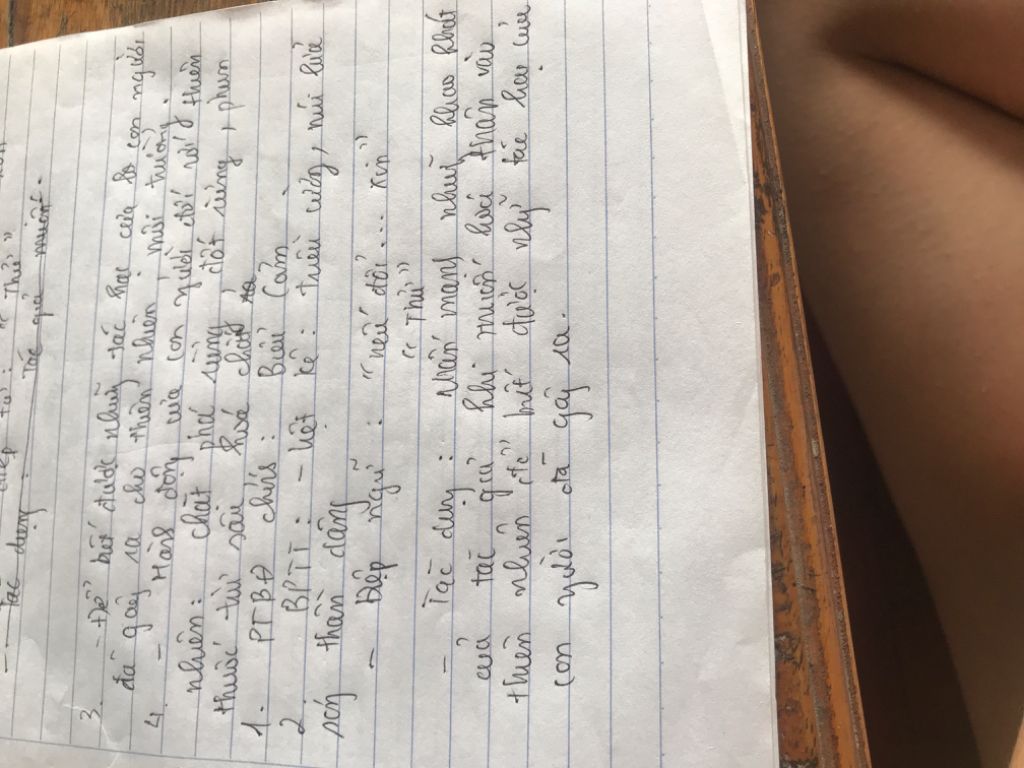 - Tác dụng:
Tác giả muốn.
3. - Để biết được những tác hại của do con người
đã gây ra cho thiên nhiên, môi trường.
4. - Hành động của con người đối với thiên
nhiên: chặt phá rừng, đốt rừng, phun
thuốc trừ sâu hoá chất
1. PTBĐ chính: Biểu cảm
2. BPTT: - Liệt kê: triền cường, núi lửa
sóng thần dâng
- Điệp ngữ: "nếu đổi... xin"
"Thử"
- Tác dụng: Nhấn mạnh những khao khát
của tác giả khi muốn hoá thân vào
thiên nhiên để biết được những tác hại của
con người đã gây ra.